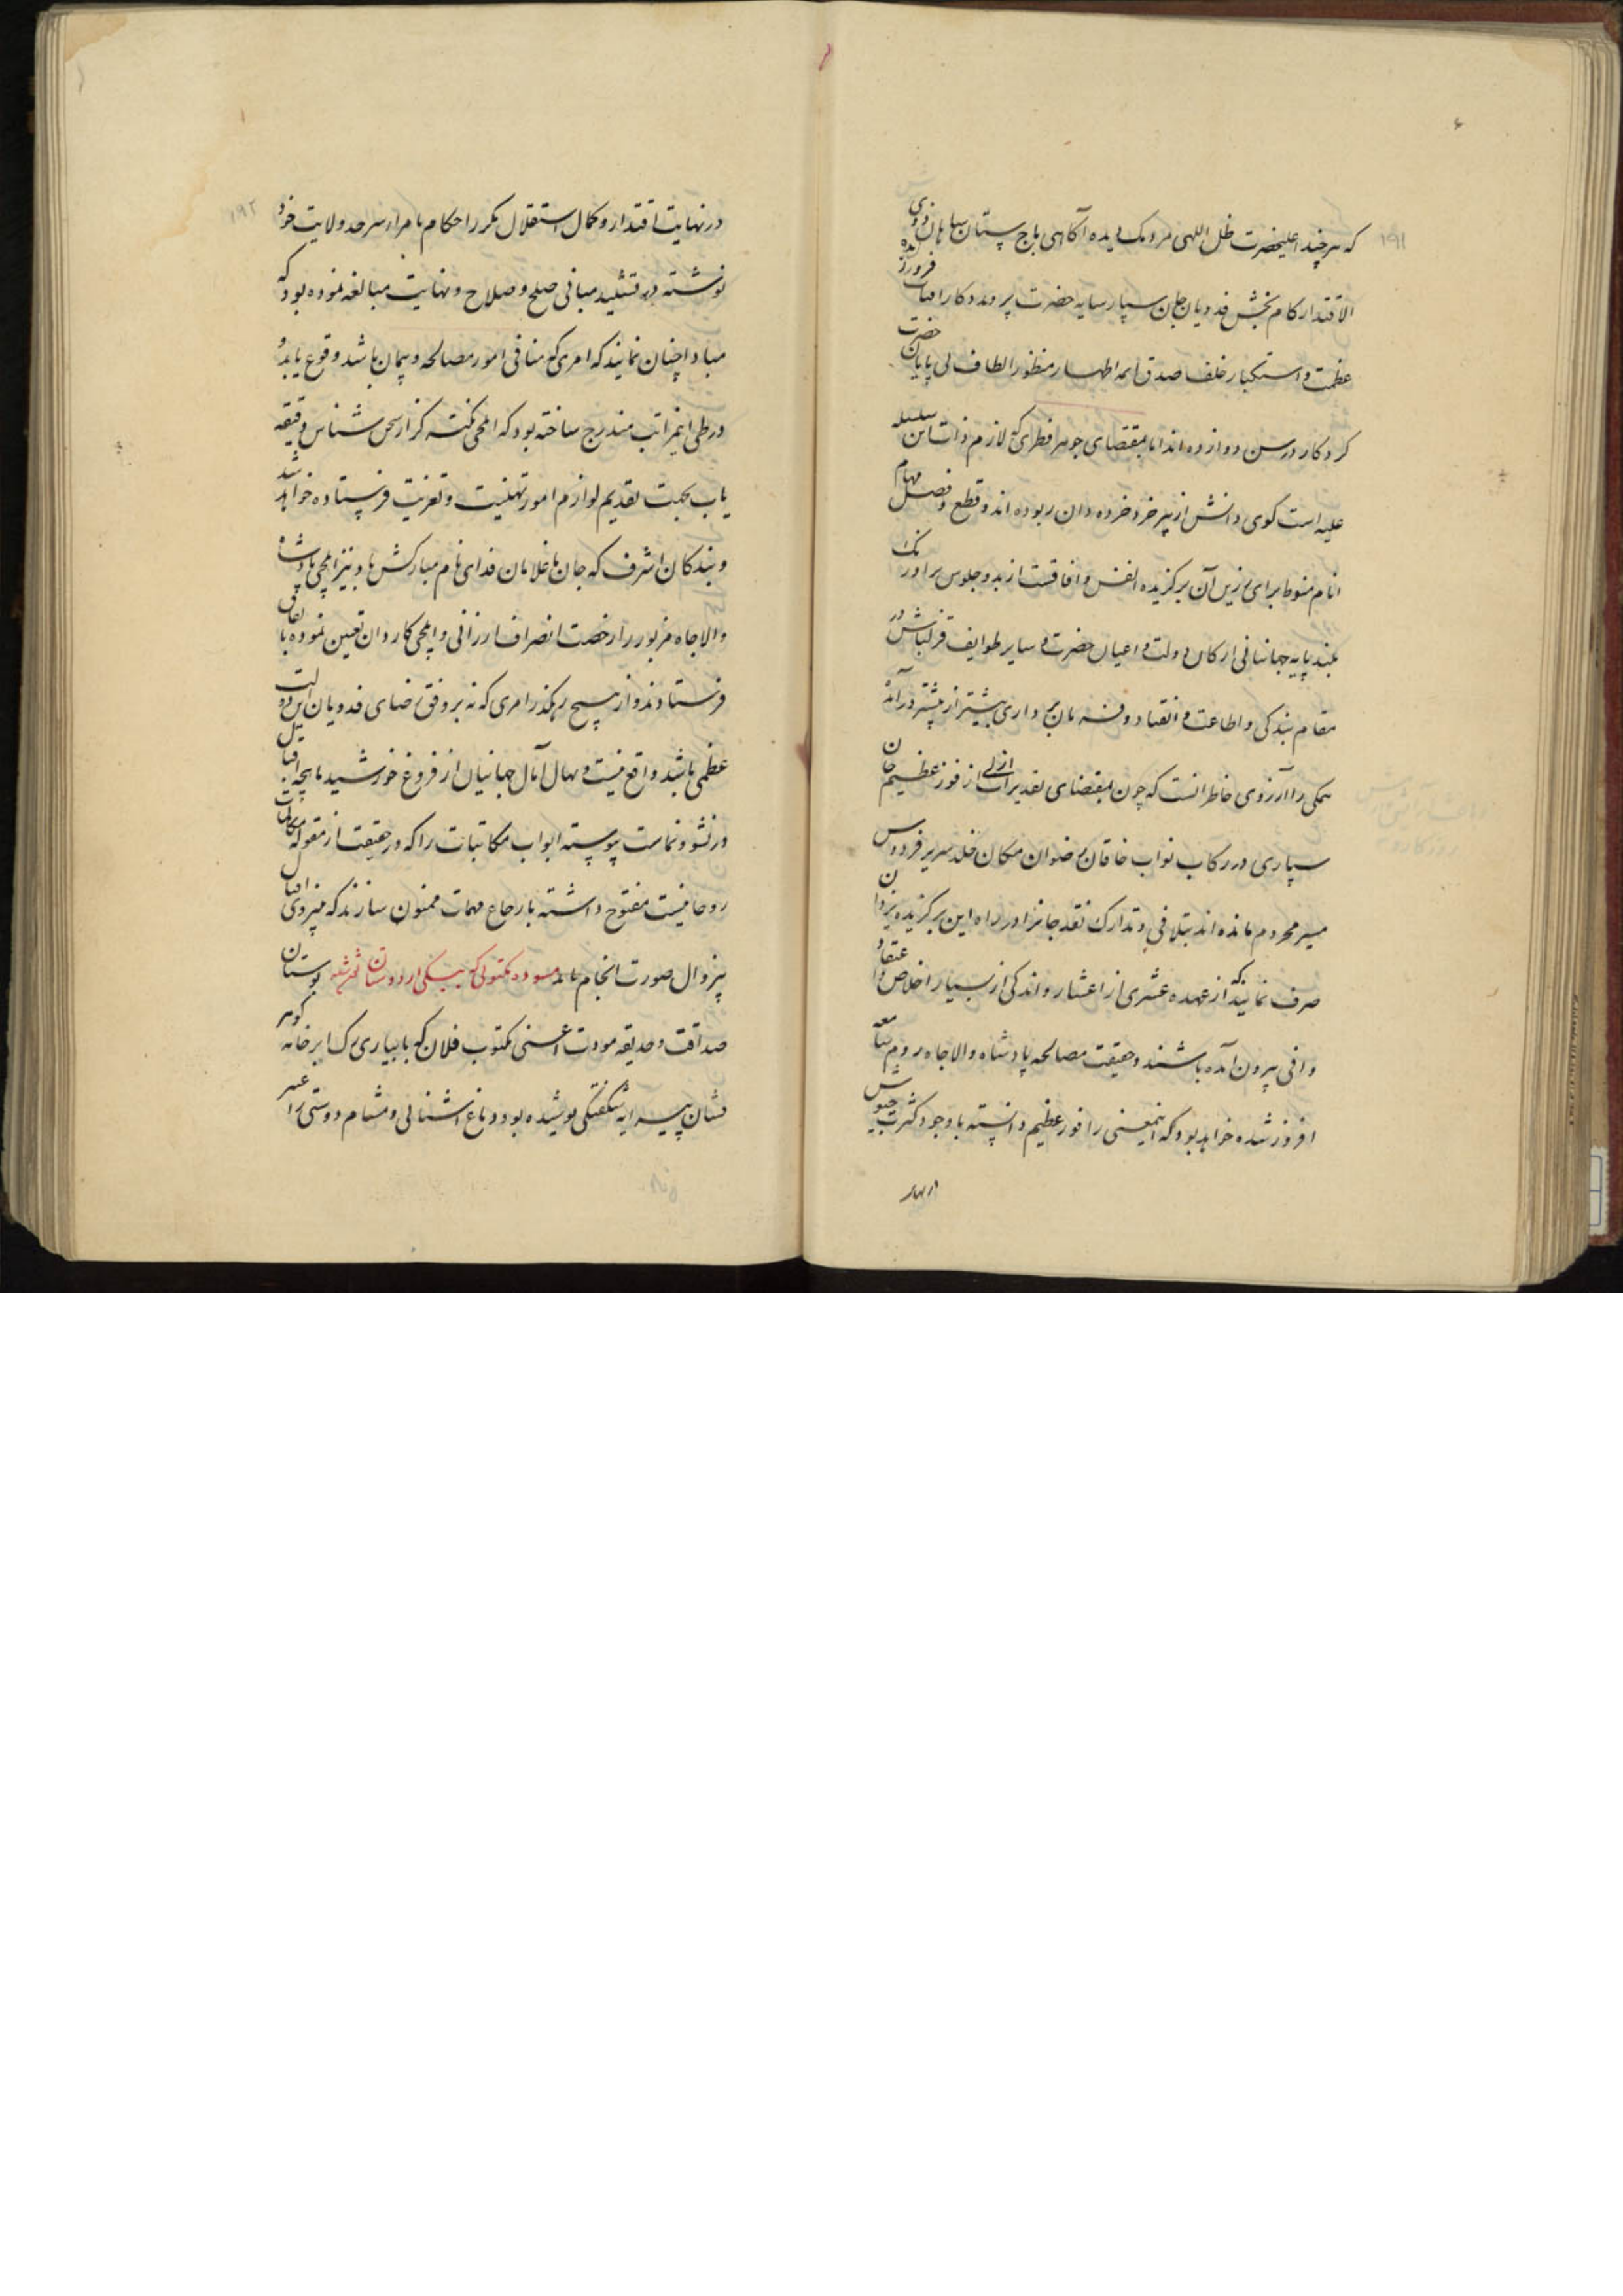 ۱۹۱
که هر چند اعلیحضرت ظل اللهی مردمک دیده آگاهی باج ستان شاهان ذوی
الاقتدار کام بخش فدویان جان سپار سایه حضرت پروردگار اقبال فروزنده
عظمت و استکبار خلف صدق ائمه اطهار منظور الطاف بی پایان حضرت
کردکار در سن دوازده اند اما بمقتضای جوهر فطری که لازم ذات این سلسله
علیه است کوی دانش از پیر خرد خرده دان ربوده اند و قطع و فصل مهام
انام منوط برای رزین آن برگزیده انفس و آفاقست از بدو جلوس بر اورنک
بلند پایه جهانبانی ارکان دولت و اعیان حضرت و سایر طوایف قزلباش در
مقام بندکی و اطاعت و انقیاد و فرمان برداری بیشتر از پیشتر در آمده
همکی را آرزوی خاطر آنست که چون بمقتضای تقدیرات ازلی از فوز عظیم جان
سپاری در رکاب نواب خاقان رضوان مکان خلد سریر فردوس
مسیر محروم مانده اند بتلافی و تدارک نقد جانرا در راه این برگزیده یزدان
صرف نمایند که از عهده عشری از اعشار و اندکی از بسیار اخلاص و اعتقاد
وافی بیرون آمده باشند و حقیقت مصالحه پادشاه والاجاه روم سامعه
افروز شده خواهد بود که اینمعنی را فوز عظیم دانسته با وجود کثرت جیوش
۱۹۲
در نهایت اقتدار و کمال استقلال مکرر احکام بامراء سرحد ولایت خود
نوشته در تشیید مبانی صلح و صلاح و نهایت مبالغه نموده بود که
مبادا چنان نمایند که امری که منافی امور مصالحه و پیمان باشد وقوع یابد و
در طی اینمراتب مندرج ساخته بود که ایلچی نکته گذار سخن شناس دقیقه
یاب بجهت تقدیم لوازم امور تهنیت و تعزیت فرستاده خواهد شد
و بندکان اشرف که جان ما غلامان فدای نام مبارکش باد نیز ایلچی پادشاه
والاجاه مزبور را رخصت انصراف ارزانی و ایلچی کاردان تعیین نموده باتفاق
فرستادند و از هیچ رهگذر امری که نه بر وفق رضای فدویان این دولت
عظمی باشد واقع نیست و نهال آمال جهانیان از فروغ خورشید ماهچه اقبال
در نشو و نماست پیوسته ابواب مکاتبات را که در حقیقت از مقوله مکالمات
روحانیست مفتوح داشته بارجاع مهمات ممنون سازند که به نیروی اقبال
بیزوال صورت انجام یابد مسوده مکتوبی که بیکی از دوستان نوشته شد بوستان
صداقت و حدیقه مودت اعنی مکتوب فلان که بابیاری رک ابر خامه گوهر
فشان پیرایه شکفتکی پوشیده بود دماغ آشنائی و مشام دوستی را عبیر